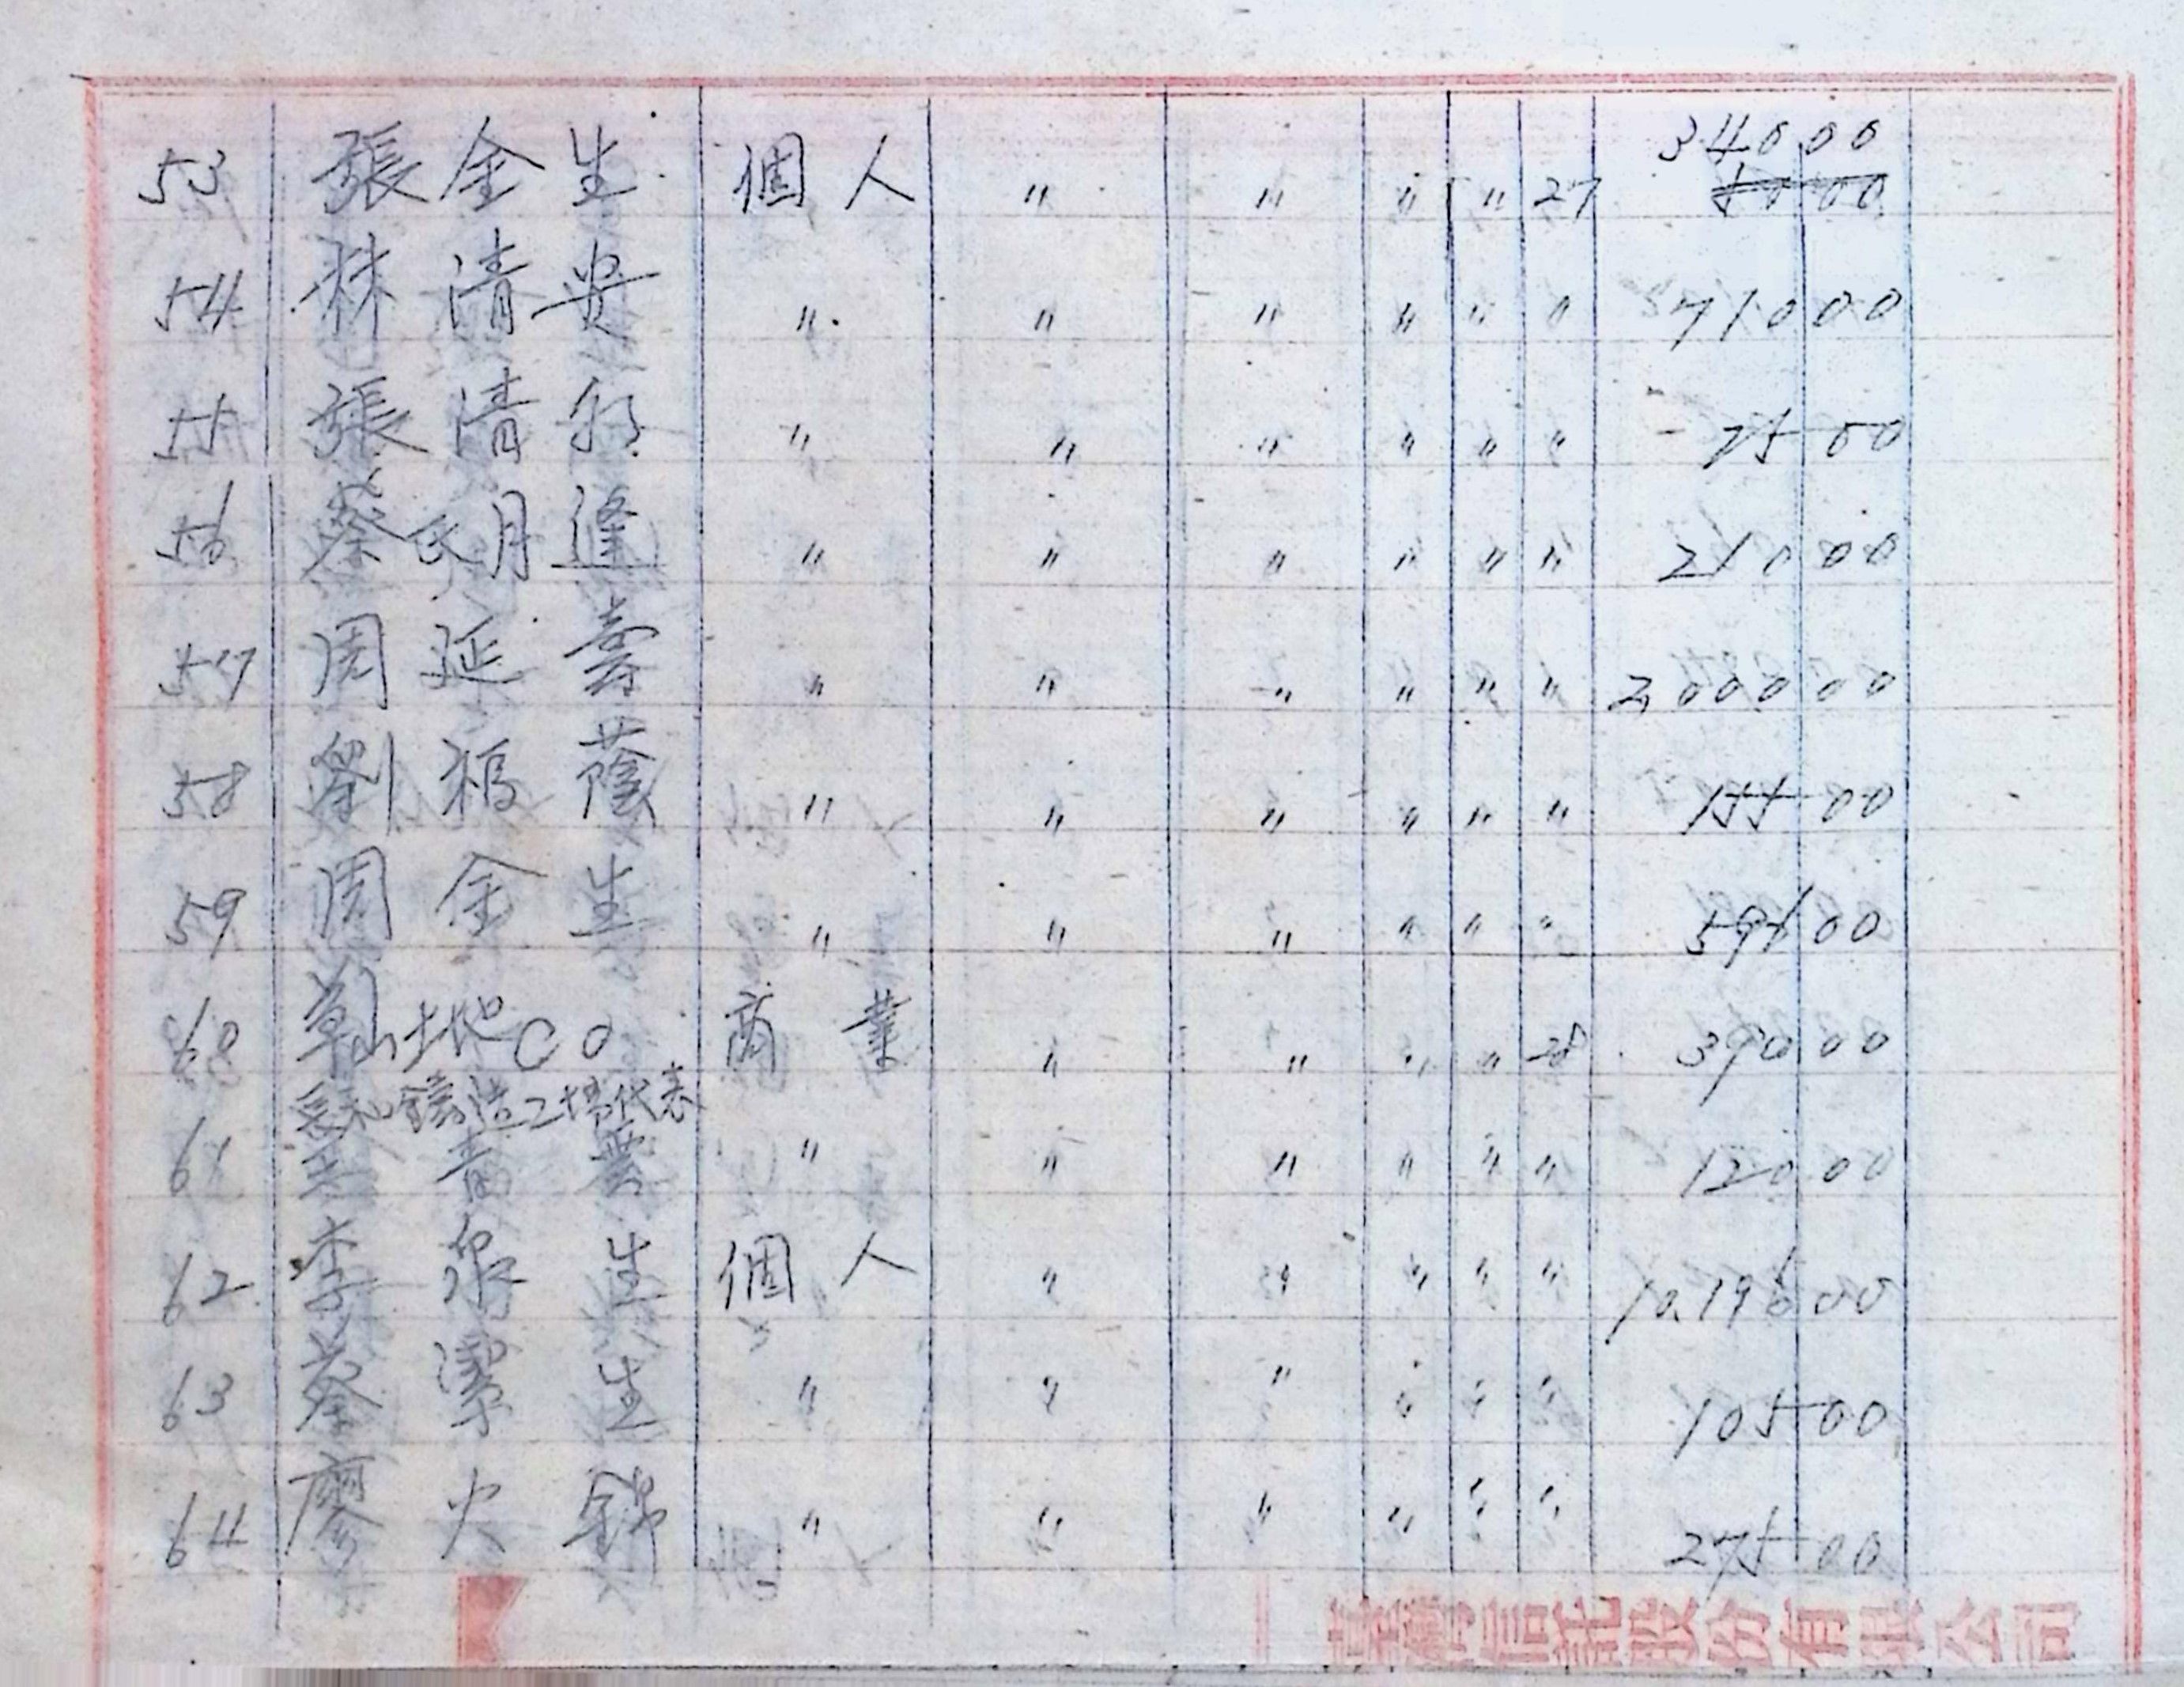 53 張金生 個人 〃 〃 〃 〃 27 34000
54 林清安 〃 〃 〃 〃 〃 〃 71000
55 張清 〃 〃 〃 〃 〃 〃 7500
56 蔡氏月逢 〃 〃 〃 〃 〃 〃 21000
57 周延壽 〃 〃 〃 〃 〃 〃 2,00000
58 劉福蔭 〃 〃 〃 〃 〃 〃 15500
59 周金生 〃 〃 〃 〃 〃 〃 59100
60 草山土地CO 商業 〃 〃 〃 〃 28 39000
鑄造工場代表
61 王青雲 〃 〃 〃 〃 〃 〃 12000
62 李泉生 個人 〃 〃 〃 〃 〃 10,19600
63 蔡潔生 〃 〃 〃 〃 〃 〃 10500
64 廖火 〃 〃 〃 〃 〃 〃 27500
臺灣信託股份有限公司